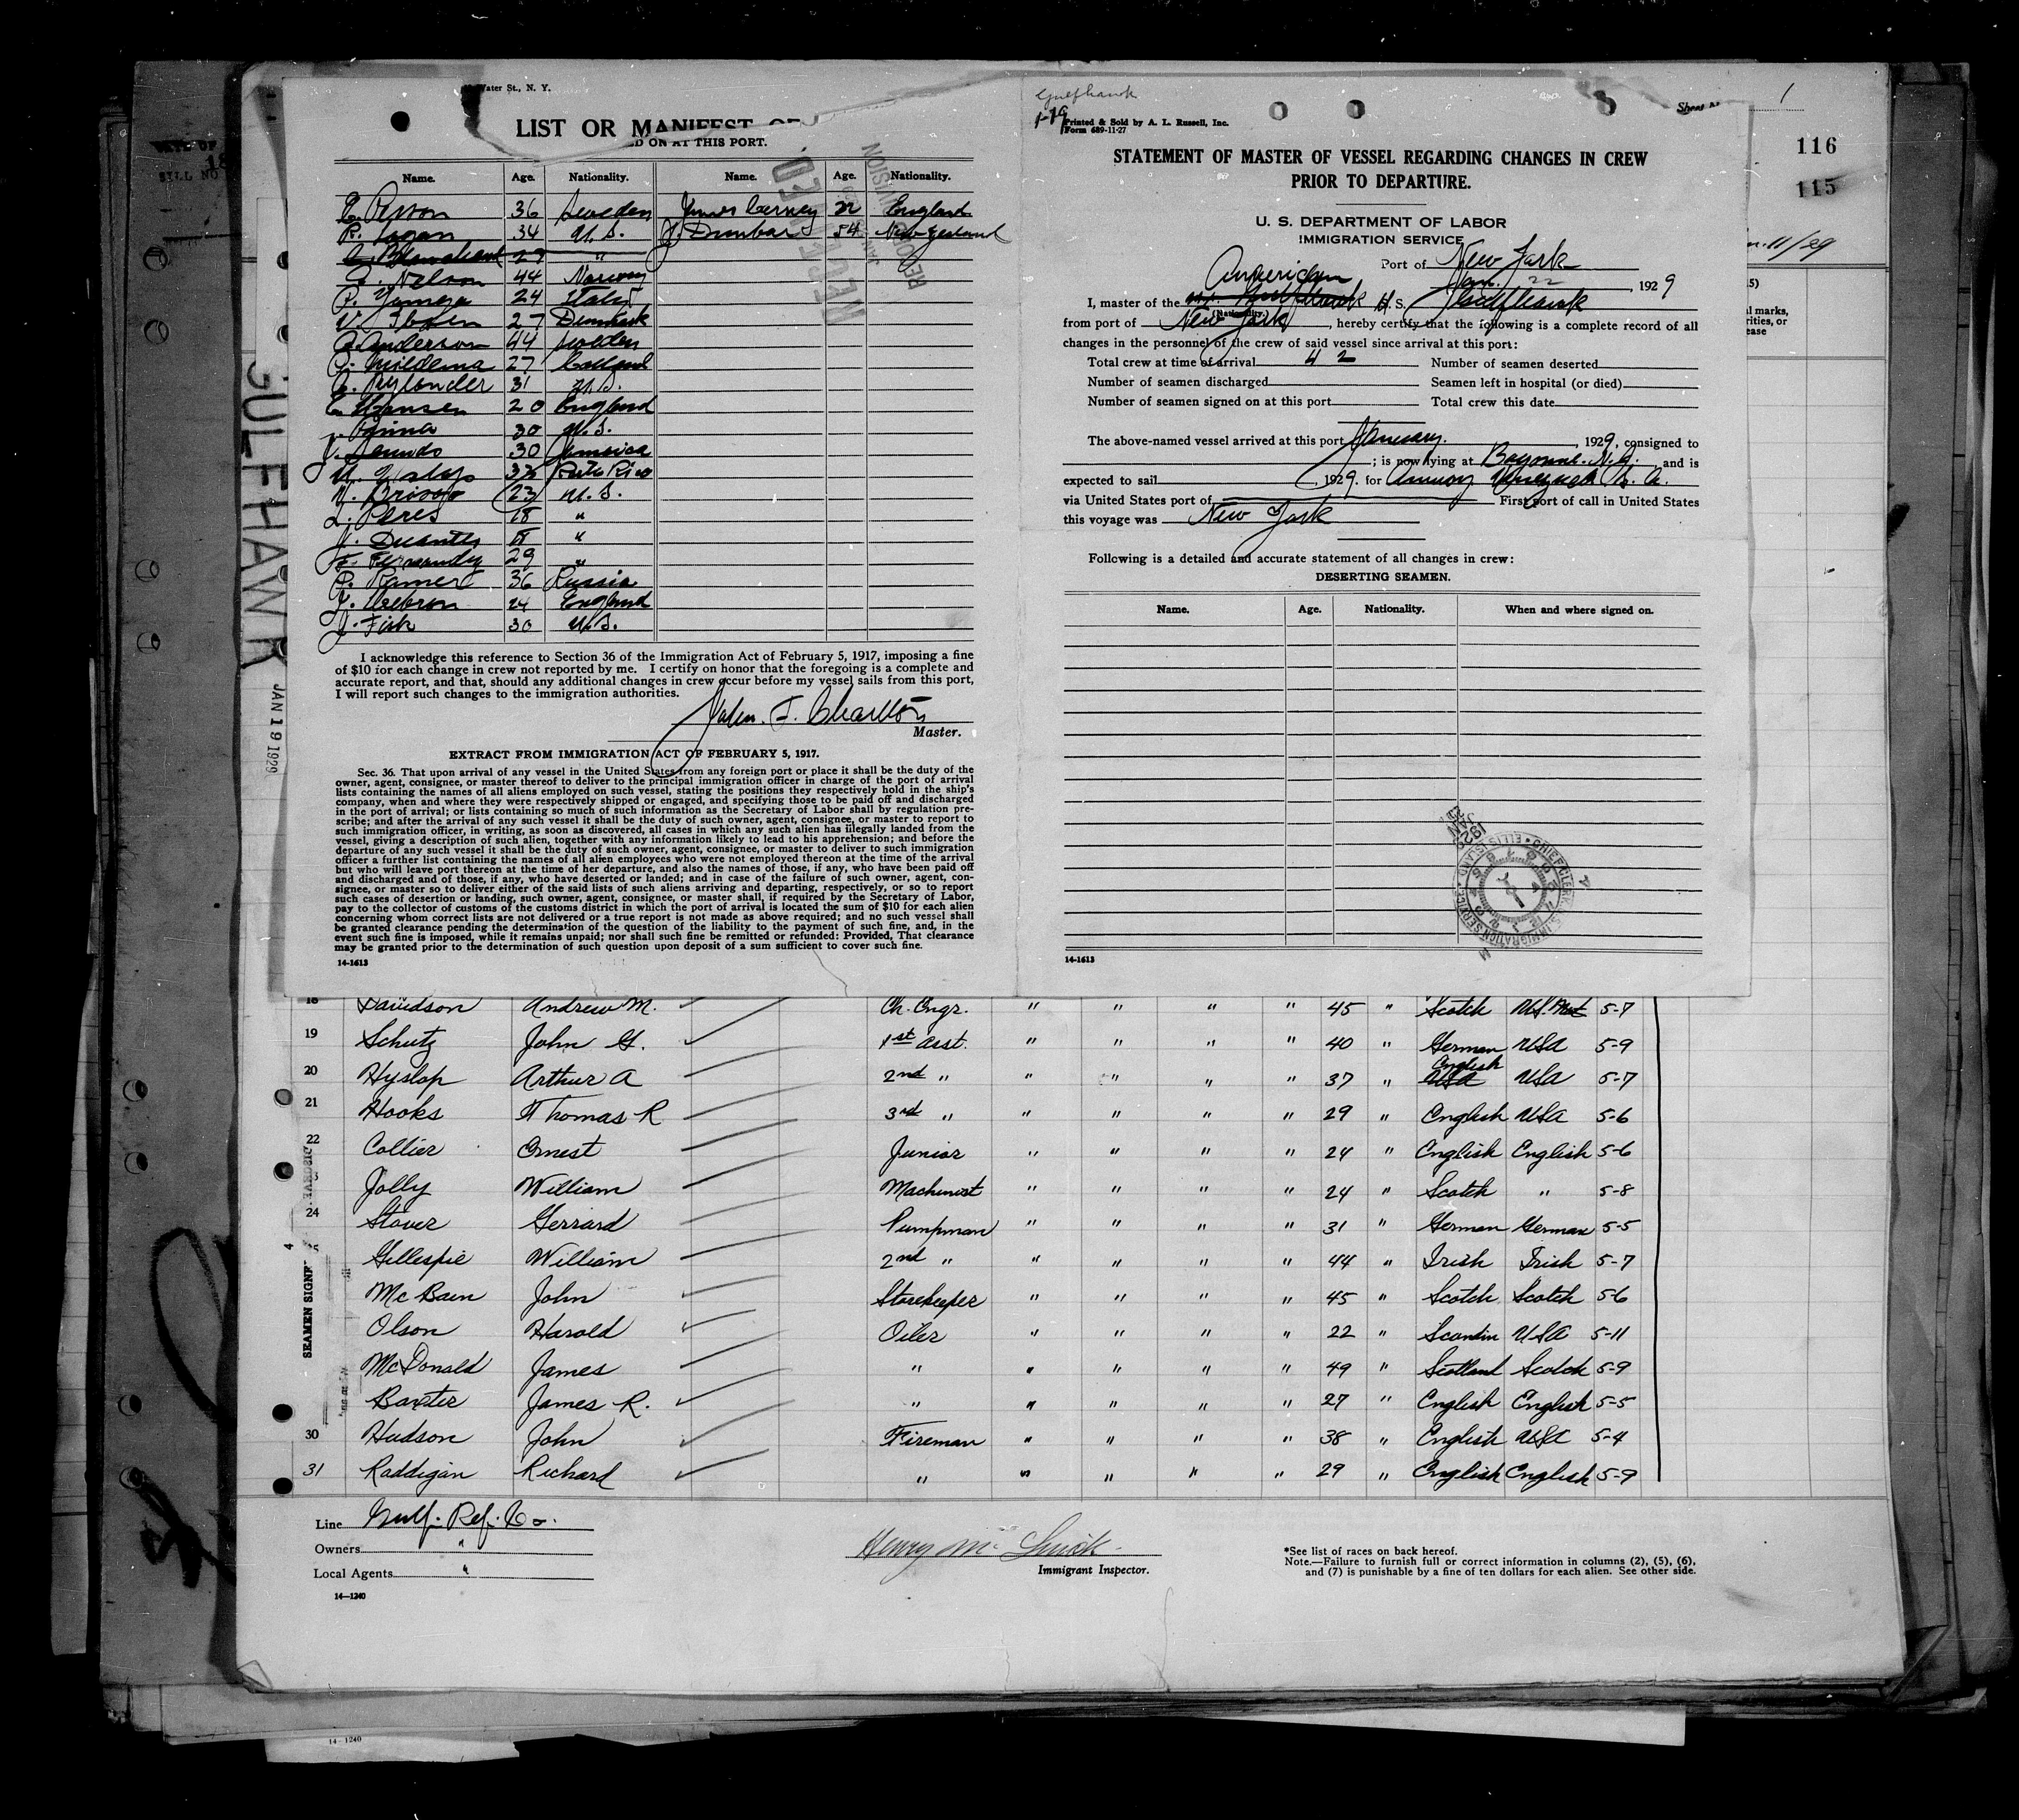 Water St., N. Y.
LIST OR MANIFEST OF
ED ON AT THIS PORT.
Name. Age. Nationality. Name. Age. Nationality.
36 Sweden 22 England
R. Logan 34 U. S. J. Dunbar 54 New Zealand
27 "
Nelson 44 Norway
24 Italy
27 Denmark
Anderson 44 Sweden
27
Rylander 31 U.S.
Hansen 20 England
30 U.S.
30 Jamaica
Porto Rico
23 U.S.
L. Peres 18 "
"
F. Fernandez 29 "
P. Ramer 36 Russia
24 England
J. Fisk 30 U.S.
I acknowledge this reference to Section 36 of the Immigration Act of February 5, 1917, imposing a fine
of $10 for each change in crew not reported by me. I certify on honor that the foregoing is a complete and
accurate report, and that, should any additional changes in crew occur before my vessel sails from this port,
I will report such changes to the immigration authorities.
John. T. Charlton
Master.
EXTRACT FROM IMMIGRATION ACT OF FEBRUARY 5, 1917.
Sec. 36. That upon arrival of any vessel in the United States from any foreign port or place it shall be the duty of the
owner, agent, consignee, or master thereof to deliver to the principal immigration officer in charge of the port of arrival
lists containing the names of all aliens employed on such vessel, stating the positions they respectively hold in the ship's
company, when and where they were respectively shipped or engaged, and specifying those to be paid off and discharged
in the port of arrival; or lists containing so much of such information as the Secretary of Labor shall by regulation pre-
scribe; and after the arrival of any such vessel it shall be the duty of such owner, agent, consignee, or master to report to
such immigration officer, in writing, as soon as discovered, all cases in which any such alien has illegally landed from the
vessel, giving a description of such alien, together with any information likely to lead to his apprehension; and before the
departure of any such vessel it shall be the duty of such owner, agent, consignee, or master to deliver to such immigration
officer a further list containing the names of all alien employees who were not employed thereon at the time of the arrival
but who will leave port thereon at the time of her departure, and also the names of those, if any, who have been paid off
and discharged and of those, if any, who have deserted or landed; and in case of the failure of such owner, agent, con-
signee, or master so to deliver either of the said lists of such aliens arriving and departing, respectively, or so to report
such cases of desertion or landing, such owner, agent, consignee, or master shall, if required by the Secretary of Labor,
pay to the collector of customs of the customs district in which the port of arrival is located the sum of $10 for each alien
concerning whom correct lists are not delivered or a true report is not made as above required; and no such vessel shall
be granted clearance pending the determination of the question of the liability to the payment of such fine, and, in the
event such fine is imposed, while it remains unpaid; nor shall such fine be remitted or refunded: Provided, That clearance
may be granted prior to the determination of such question upon deposit of a sum sufficient to cover such fine.
14-1613
GULFHAWK
JAN 19 1929
Gulfhawk
1-19
Printed & Sold by A. L. Russell, Inc.
Form 689-11-27
Sheet 1
116
115
STATEMENT OF MASTER OF VESSEL REGARDING CHANGES IN CREW
PRIOR TO DEPARTURE.
U. S. DEPARTMENT OF LABOR
IMMIGRATION SERVICE
Port of New York
Jan. 22, 1929
American
I, master of the S. S. Gulfhawk
(Nationality.)
from port of New York, hereby certify that the following is a complete record of all
changes in the personnel of the crew of said vessel since arrival at this port:
Total crew at time of arrival 42 Number of seamen deserted
Number of seamen discharged Seamen left in hospital (or died)
Number of seamen signed on at this port Total crew this date
The above-named vessel arrived at this port January. , 1929, consigned to
; is now lying at Bayonne. N.J. and is
expected to sail , 1929. for
via United States port of First port of call in United States
this voyage was New York
Following is a detailed and accurate statement of all changes in crew:
DESERTING SEAMEN.
Name. Age. Nationality. When and where signed on.
14-1613
11/29
18 Davidson Andrew M. Ch. Engr. " " " " 45 " Scotch 5-7
19 Schutz John G. 1st Asst. " " " " 40 " German USA 5-9
20 Hyslop Arthur A 2nd " " " " " 37 " USA English USA 5-7
21 Hooks Thomas R 3rd " " " " " 29 " English USA 5-6
22 Collier Ernest Junior " " " " 24 " English English 5-6
Jolly William Machinist " " " " 24 " Scotch " 5-8
24 Stover Gerrard Pumpman " " " " 31 " German German 5-5
Gillespie William 2nd " " " " " 44 " Irish Irish 5-7
McBain John Storekeeper " " " " 45 " Scotch Scotch 5-6
Olson Harold Oiler " " " " 22 " Scandin USA 5-11
McDonald James " " " " " 49 " Scotland Scotch 5-9
Baxter James R. " " " " " 27 " English English 5-5
30 Hudson John Fireman " " " " 38 " English USA 5-4
31 Raddigan Richard " " " " " 29 " English English 5-9
SEAMEN SIGNE
Line Gulf. Ref. Co.
Owners "
Local Agents "
14-1240
Henry Mc
Immigrant Inspector.
*See list of races on back hereof.
Note.—Failure to furnish full or correct information in columns (2), (5), (6),
and (7) is punishable by a fine of ten dollars for each alien. See other side.
14-1240